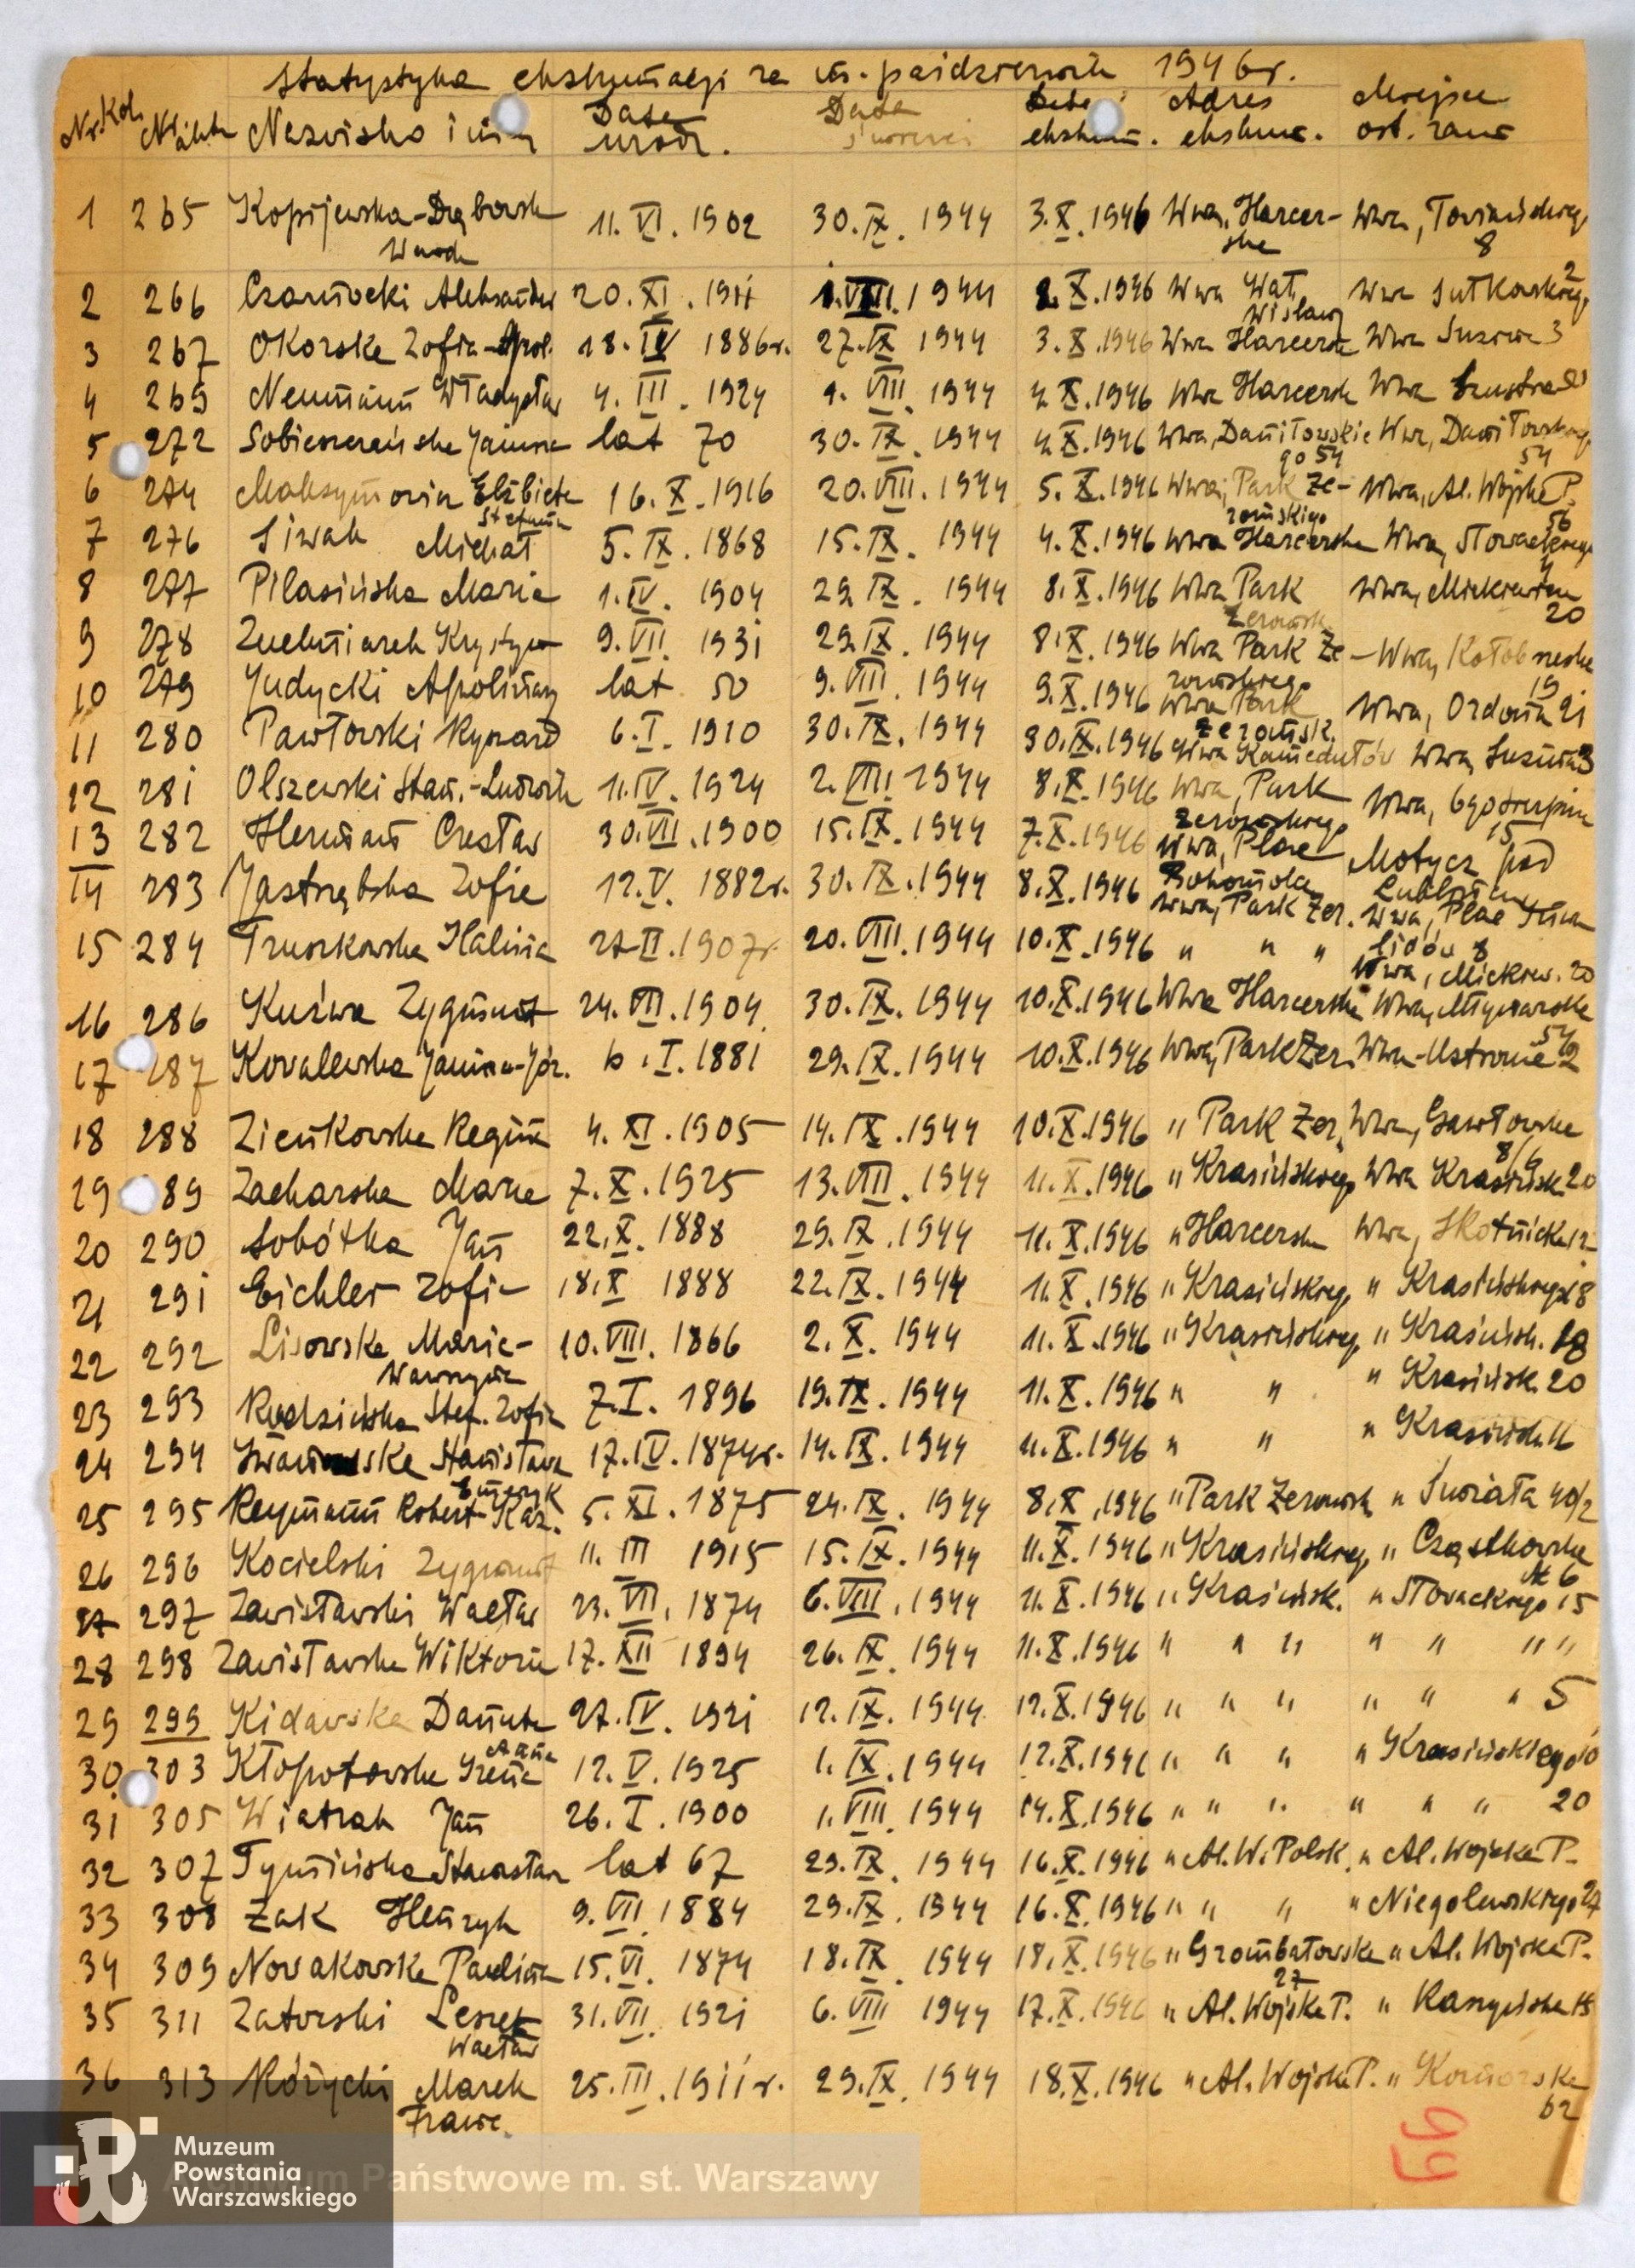 Statystyka ekshumacji za m. październik 1946 r.
Nr. Kol. Nazwisko i imię Data urodz. Data śmierci Data ekshum. Adres ekshum. Miejsce ost. zam.
1 265 Kopijewska-Dąbrowsk Wanda 11. VI. 1902 30. IX. 1944 3. X. 1946 Wwa, Harcerska Wwa, Towiańskiego 8
2 266 Czarnocki Aleksander 20. XI. 1911 1. VIII. 1944 2. X. 1946 Wwa Wał Wiślany Wwa 2
3 267 Okorska Zofia-Apol. 18. IV 1886 r. 27. IX 1944 3. X. 1946 Wwa Harcersk Wwa Suzina 3
4 269 Neumann Władysław 4. III. 1924 1. VIII. 1944 4. X. 1946 Wwa Harcersk Wwa
5 272 Sobieszczańska Janina lat 70 30. IX. 1944 4. X. 1946 Wwa, Daniłowskiego 54 Wwa, Daniłowskiego 54
6 274 Maksymowicz Elżbieta Stefania 16. X. 1916 20. VIII. 1944 5. X. 1946 Wwa, Park Żeromskiego Wwa, Al. Wojska P. 56
7 276 Siwak Michał 5. IX. 1868 15. IX. 1944 4. X. 1946 Wwa Harcerska Wwa, Słowackiego
8 277 Pilasińska Maria 1. IV. 1904 29. IX. 1944 8. X. 1946 Wwa Park Żeromsk. Wwa, Mickiewicza 20
9 278 Krystyna 9. VII. 1931 29. IX. 1944 8. X. 1946 Wwa Park Żeromskiego Wwa, 19
10 279 Judycki Apolinary lat 50 9. VIII. 1944 9. X. 1946 Wwa Park Żeromsk. Wwa, Ordona 21
11 280 Pawłowski Ryszard 6. I. 1910 30. IX. 1944 30. IX. 1946 Wwa Kamedułów Wwa, Suzina 3
12 281 Olszewski Stan.-Ludwik 11. IV. 1924 2. VIII 1944 8. X. 1946 Wwa, Park Żeromskiego Wwa, 6go sierpnia 15
13 282 Herman Czesław 30. VII. 1900 15. IX. 1944 7. X. 1946 Wwa, Plac Motycz pod Lublinem
14 283 Jastrzębska Zofia 12. V. 1882 r. 30. IX. 1944 8. X. 1946 Wwa, Park Żer. Wwa, Plac Inwalidów 8
15 284 Truszkowska Halina 27. II. 1907 r. 20. VIII. 1944 10. X. 1946 " " " Wwa, Mickiew. 20
16 286 Kuźwa Zygmunt 24. VII. 1904 30. IX. 1944 10. X. 1946 Wwa Harcerska Wwa, Młynarska 54
17 287 Kowalewska Janina-Józ. 6. I. 1881 29. IX. 1944 10. X. 1946 Wwa, Park Żer. Wwa-Ustronie 2
18 288 Zienkowska Regina 4. XI. 1905 14. IX. 1944 10. X. 1946 " Park Żer. Wwa, Gawłowska 8/6
19 89 Zacharska Maria 7. X. 1925 13. VIII. 1944 11. X. 1946 " Krasińskiego Wwa Krasińsk. 20
20 290 Sobótka Jan 22. X. 1888 29. IX. 1944 11. X. 1946 " Harcerska Wwa, Skotnicka 12
21 291 Eichler Zofia 18. X 1888 22. IX. 1944 11. X. 1946 " Krasińskiego " Krasińskiego 18
22 292 Lisowska Maria-Wawrzyna 10. VIII. 1866 2. X. 1944 11. X. 1946 " Krasińskiego " Krasińsk. 18
23 293 Rudzińska Stef. Zofia 7. I. 1896 19. IX. 1944 11. X. 1946 " " " Krasińsk. 20
24 294 Stanisława 17. IV. 1874 r. 14. IX. 1944 11. X. 1946 " " " Krasińsk. 16
25 295 Reymann Robert-Kaz. Emeryk 5. XI. 1875 24. IX. 1944 8. X. 1946 " Park Żeromsk. " Promyka 40/2
26 296 Kocielski Zygmunt 11. III 1915 15. IX. 1944 11. X. 1946 " Krasińskiego " Cząstkowska № 6
27 297 Zawistawski Wacław 23. VII. 1874 6. VIII. 1944 11. X. 1946 " Krasińsk. " Słowackiego 15
28 298 Zawisławska Wiktoria 17. XII 1894 26. IX. 1944 11. X. 1946 " " " " " " "
29 299 Kidawska Danuta 27. IV. 1921 12. IX. 1944 12. X. 1946 " " " " " " 5
30 303 Kłopotowska Irena Anna 12. V. 1925 1. IX. 1944 12. X. 1946 " " " " Krasińskiego 10
31 305 Wiatrak Jan 26. I. 1900 1. VIII. 1944 14. X. 1946 " " " " " " 20
32 307 Tymińska Stanisława lat 67 29. IX. 1944 16. X. 1946 " Al. W. Polsk. " Al. Wojska P.
33 308 Żak Henryk 9. VII. 1884 29. IX. 1944 16. X. 1946 " " " " Niegolewskiego 27
34 309 Nowakowska Paulina 15. VI. 1874 18. IX. 1944 18. X. 1946 " Grombałowska 27 " Al. Wojska P.
35 311 Zatorski Leszek Wacław 31. VII. 1921 6. VIII 1944 17. X. 1946 " Al. Wojska P. " Kaszyńska 15
36 313 Różycki Marek Franc. 25. III. 1911 r. 29. IX. 1944 18. X. 1946 " Al. Wojska P. " 62
99
Muzeum
Powstania
Warszawskiego
Archiwum Państwowe m. st. Warszawy